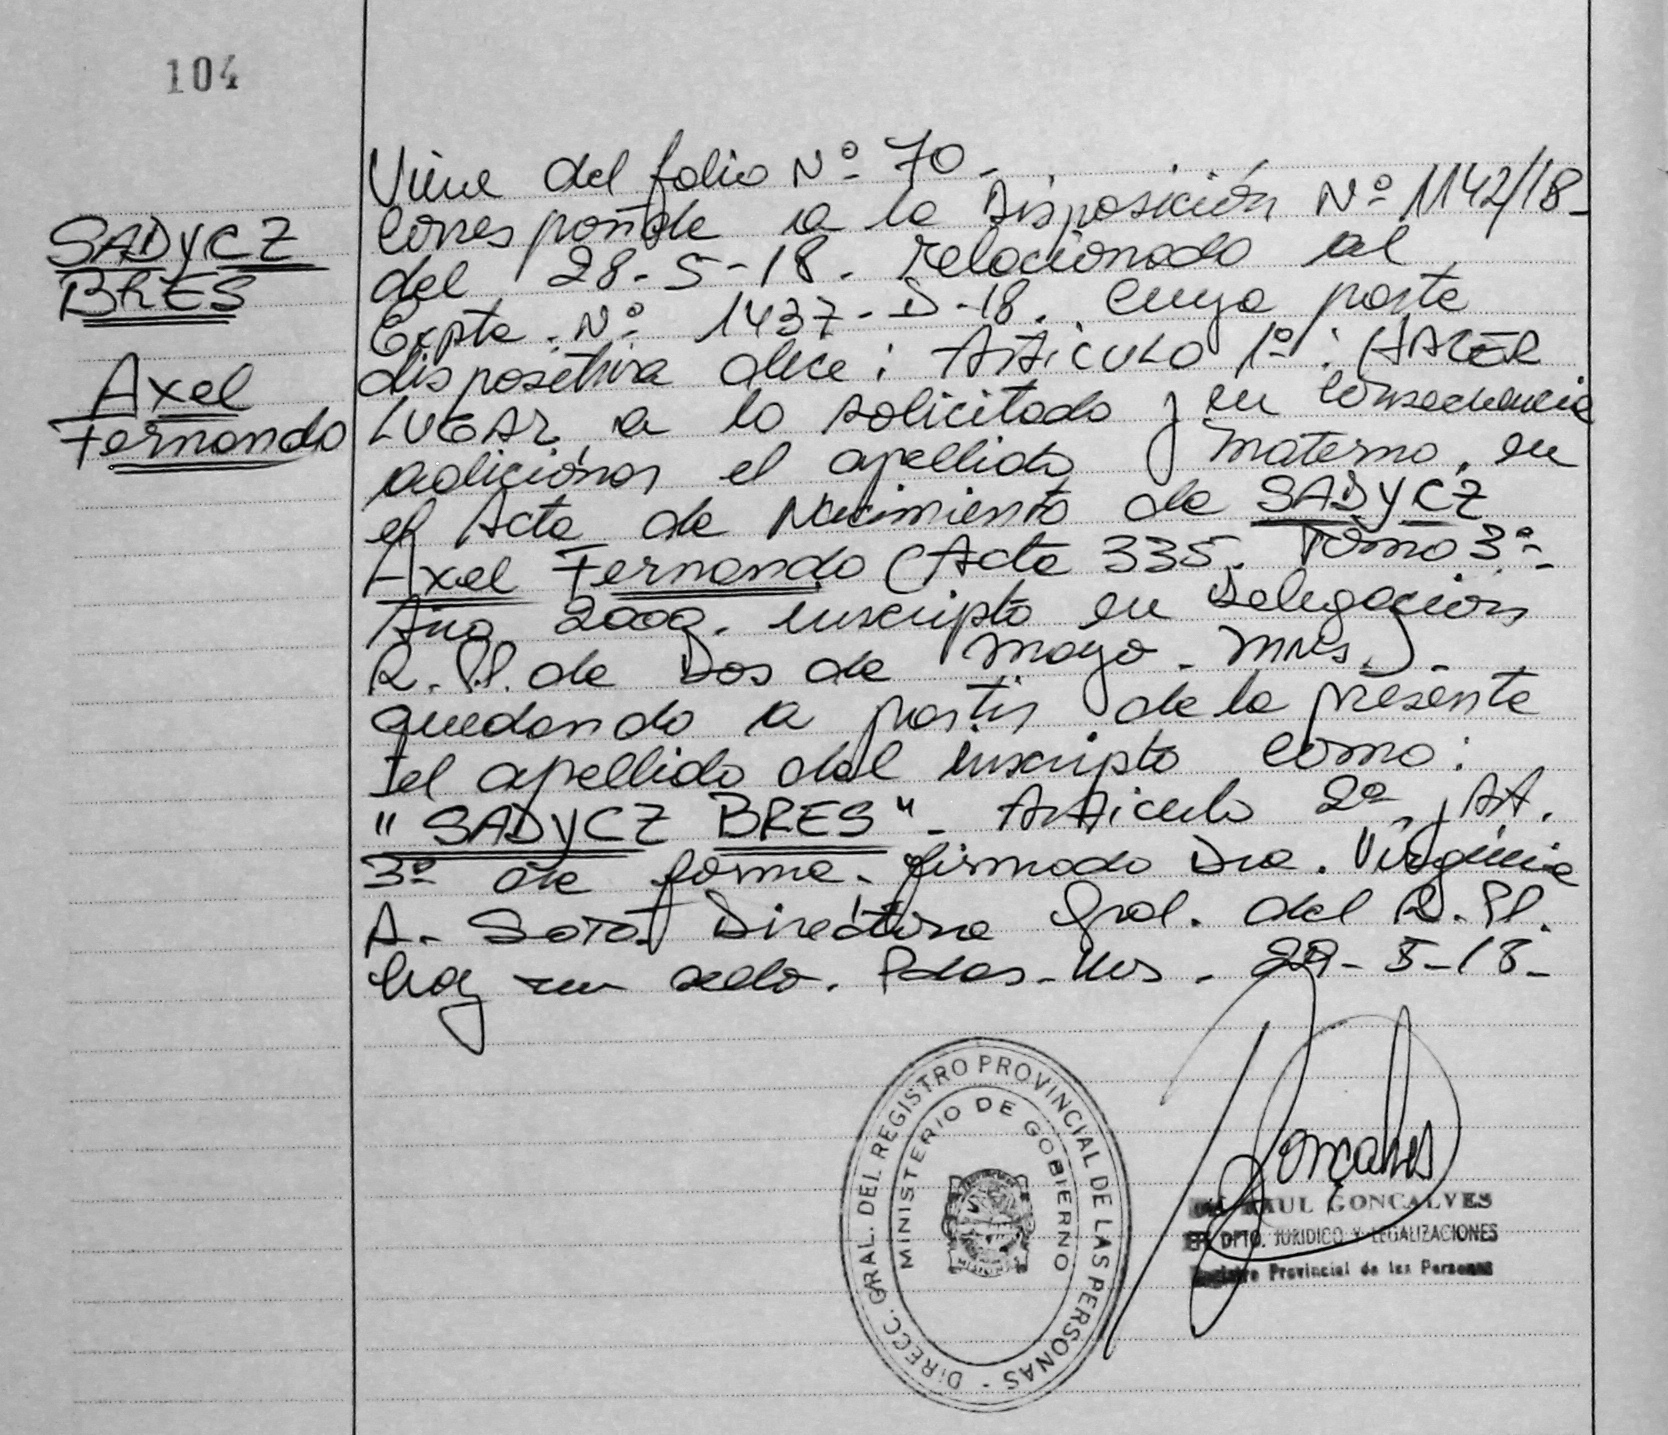 104
SADYCZ
BRES
Axel
Fernando
Viene del folio Nº 70.
Corresponde a la Disposición Nº 1142/18-
del 28-5-18. relacionado al
Expte. Nº 1437-D-18. cuya parte
dispositiva dice: ARTICULO 1º: HACER
LUGAR a lo solicitado y en consecuencia
adicionar el apellido materno, en
el Acta de Nacimiento de SADYCZ
Axel Fernando (Acta 335. Tomo 3º-
Año 2009. inscripto en Delegación
R.P. de Dos de Mayo. Mnes.).
quedando a partir de la presente
el apellido del inscripto como:
"SADYCZ BRES"- Artículo 2º, Art.
3º de forma. firmado Dra. Virginia
A. Soto. Directora Gral. del R.P.
hay un sello. Pdas-Mns. 29-5-18-
DIRECC. GRAL. DEL REGISTRO PROVINCIAL DE LAS PERSONAS -
MINISTERIO DE GOBIERNO
MISIONES
Gonçalves
RAUL GONCALVES
DPTO. JURIDICO Y LEGALIZACIONES
Registro Provincial de las Personas